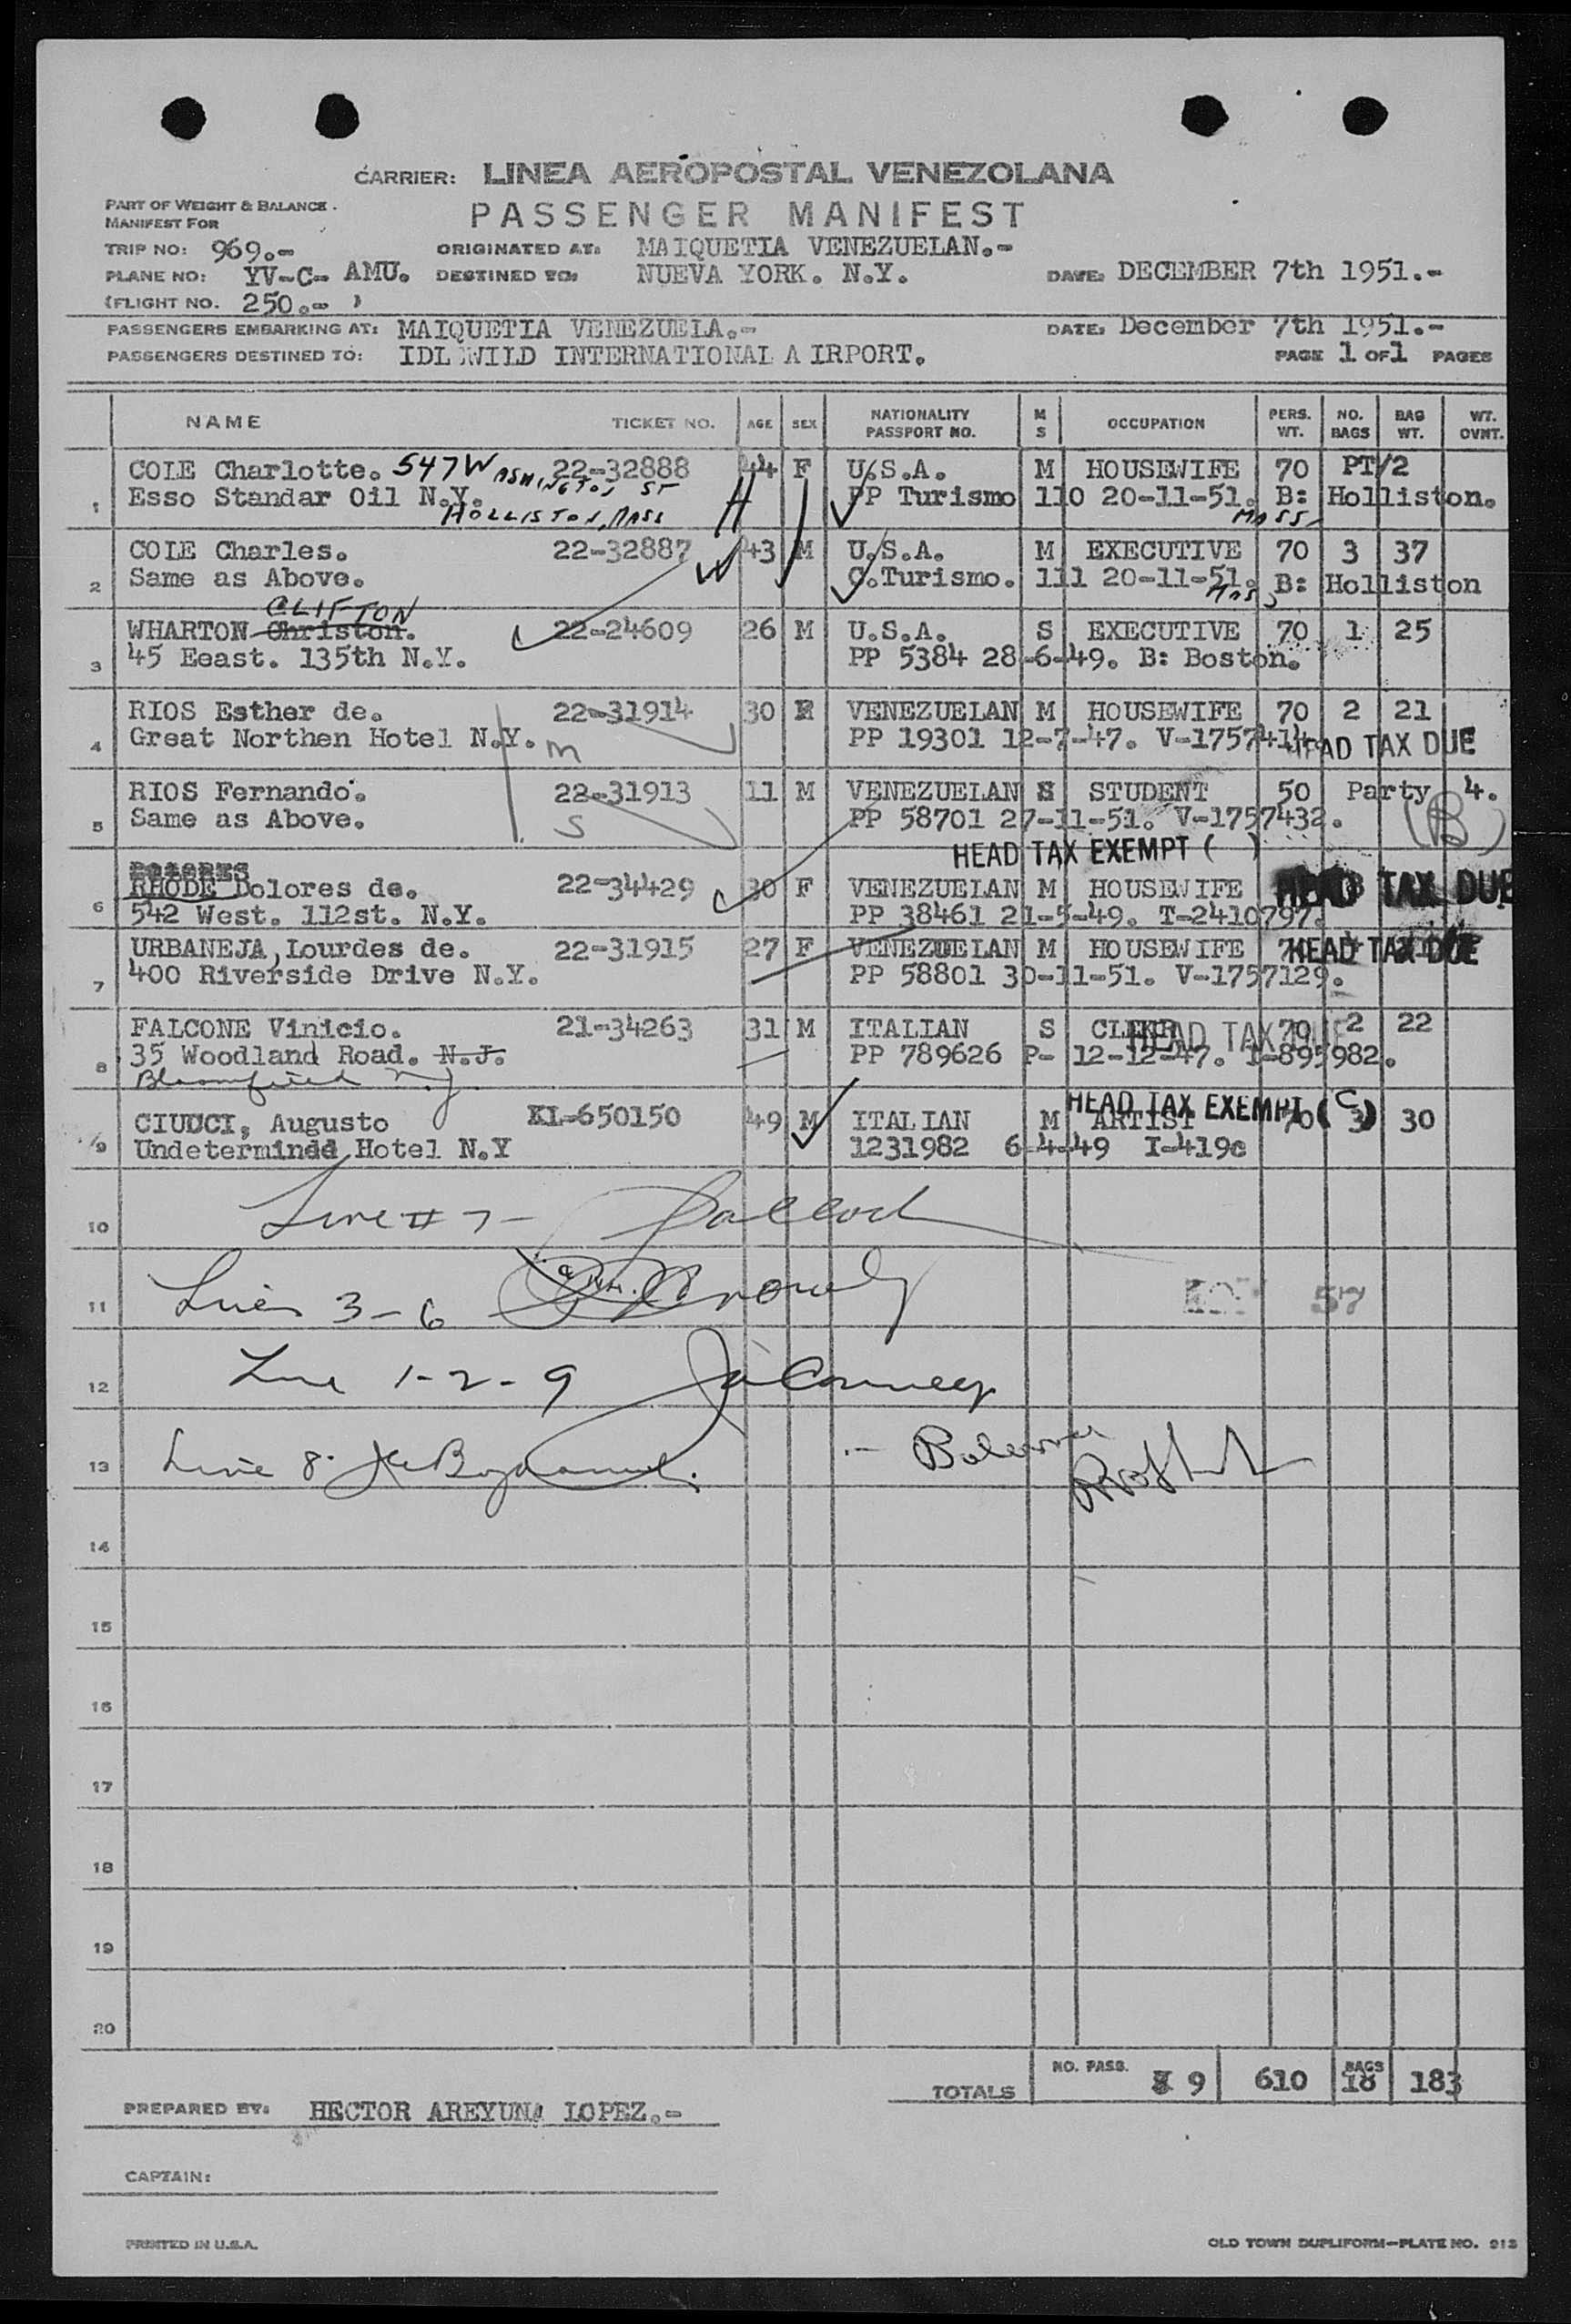 CARRIER: LINEA AEROPOSTAL VENEZOLANA
PART OF WEIGHT & BALANCE
MANIFEST FOR
PASSENGER MANIFEST
TRIP NO: 969.- ORIGINATED AT: MAIQUETIA VENEZUELAN.-
PLANE NO: YV-C- AMU. DESTINED TO: NUEVA YORK. N.Y. DATE: DECEMBER 7th 1951.-
(FLIGHT NO. 250.- )
PASSENGERS EMBARKING AT: MAIQUETIA VENEZUELA.- DATE: December 7th 1951.-
PASSENGERS DESTINED TO: IDLWILD INTERNATIONAL A IRPORT. PAGE 1 OF 1 PAGES
NAME TICKET NO. AGE SEX NATIONALITY PASSPORT NO. M S OCCUPATION PERS. WT. NO. BAGS BAG WT. WT. OVNT.
COLE Charlotte. 547 WASHINGTON ST 22-32888 44 F U.S.A. M HOUSEWIFE 70 PT/2
1 Esso Standar Oil N.Y. HOLLISTON, MASS PP Turismo 110 20-11-51. B: Holliston. MASS
COLE Charles. 22-32887 43 M U.S.A. M EXECUTIVE 70 3 37
2 Same as Above. C.Turismo. 111 20-11-51. B: Holliston MASS
CLIFTON
WHARTON Christon. 22-24609 26 M U.S.A. S EXECUTIVE 70 1 25
3 45 Eeast. 135th N.Y. PP 5384 28-6-49. B: Boston.
RIOS Esther de. 22-31914 30 F VENEZUELAN M HOUSEWIFE 70 2 21
4 Great Northen Hotel N.Y. m PP 19301 12-7-47. V-1757414. HEAD TAX DUE
RIOS Fernando. 22-31913 11 M VENEZUELAN S STUDENT 50 Party 4.
5 Same as Above. S PP 58701 27-11-51. V-1757432. (B)
HEAD TAX EXEMPT ( )
RHODE Dolores de. 22-34429 30 F VENEZUELAN M HOUSEWIFE HEAD TAX DUE
6 542 West. 112st. N.Y. PP 38461 21-5-49. T-2410797.
URBANEJA, Lourdes de. 22-31915 27 F VENEZUELAN M HOUSEWIFE HEAD TAX DUE
7 400 Riverside Drive N.Y. PP 58801 30-11-51. V-1757129.
FALCONE Vinicio. 21-34263 31 M ITALIAN S CLERK 70 2 22
HEAD TAX DUE
8 35 Woodland Road. N.J. PP 789626 P- 12-12-47. I-895982.
Bloomfield N.J.
HEAD TAX EXEMPT ( C )
CIUCCI, Augusto KL-650150 49 M ITALIAN M ARTIST 70 3 30
9 Undetermined Hotel N.Y 1231982 6-4-49 I-419c
10 Line # 7 -
11 Lines 3-6 57
12 Line 1-2-9
13 Line 8.
14
15
16
17
18
19
20
TOTALS NO. PASS. 9 610 BAGS 18 183
PREPARED BY: HECTOR AREYUNA LOPEZ.-
CAPTAIN:
PRINTED IN U.S.A. OLD TOWN DUPLIFORM—PLATE NO. 913